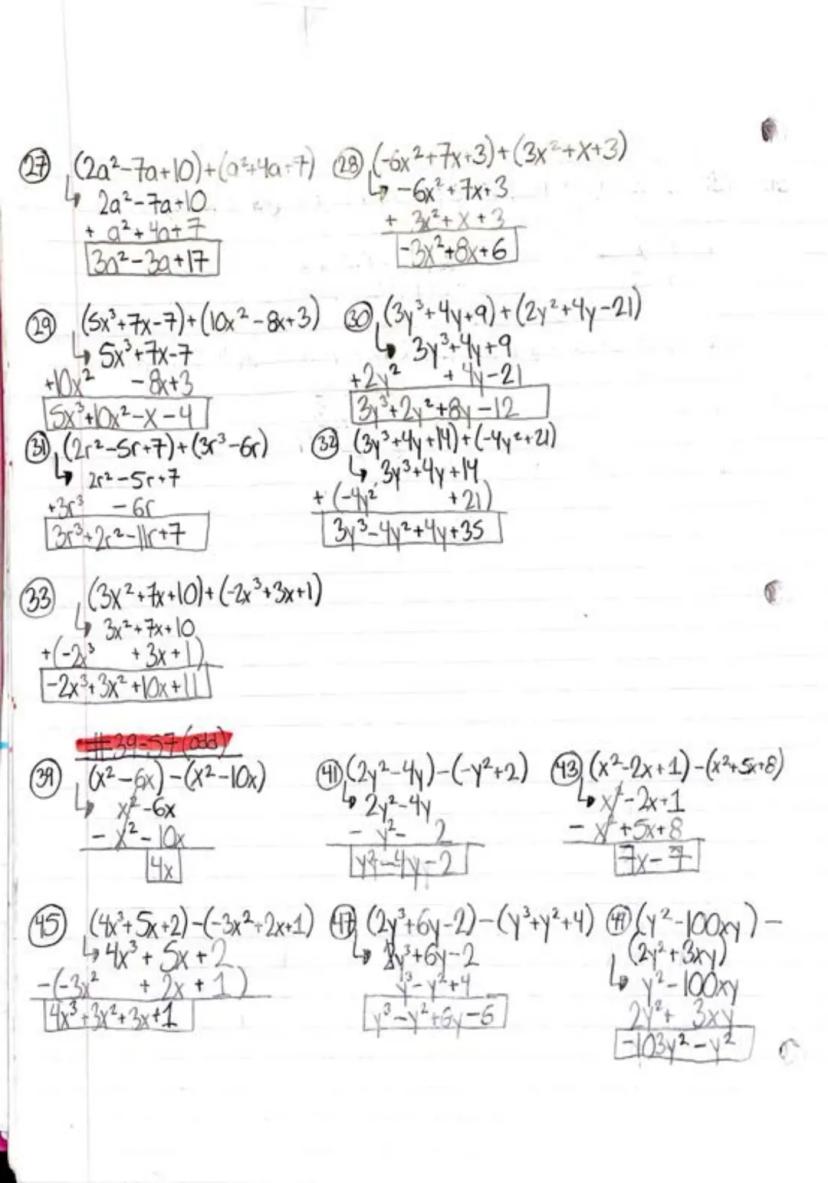 27 (2a²-7a+10)+(a²+4a+7)
2a²-7a+10
+ a²+4a+7
3a²-3a+17
28 (-6x²+7x+3)+(3x²+x+3)
-6x²+7x+3
+ 3x²+x+3
-3x²+8x+6
29 (5x³+7x-7)+(10x²-8x+3)
5x³+7x-7
+10x² -8x+3
5x³+10x²-x-4
30 (3y³+4y+9)+(2y²+4y-21)
3y³+4y+9
+2y² +4y-21
3y³+2y²+8y-12
31 (2r²-5r+7)+(3r³-6r)
2r²-5r+7
+3r³ -6r
3r³+2r²-11r+7
32 (3y³+4y+14)+(-4y²+21)
3y³+4y+14
+(-4y² +21)
3y³-4y²+4y+35
33 (3x²+7x+10)+(-2x³+3x+1)
3x²+7x+10
+(-2x³ +3x+1)
-2x³+3x²+10x+11
#39-57 (odd)
39 (x²-6x)-(x²-10x)
x²-6x
- x²-10x
4x
41 (2y²-4y)-(-y²+2)
2y²-4y
- y²- 2
y²-4y-2
43 (x²-2x+1)-(x²+5x+8)
x²-2x+1
- x²+5x+8
7x-7
45 (4x³+5x+2)-(-3x²+2x+1)
4x³+5x+2
-(-3x² +2x+1)
4x³+3x²+3x+1
47 (2y³+6y-2)-(y³+y²+4)
2y³+6y-2
y³-y²+4
y³-y²+6y-6
49 (y²-100xy)-
(2y²+3xy)
y²-100xy
2y²+ 3xy
-103y²-y²